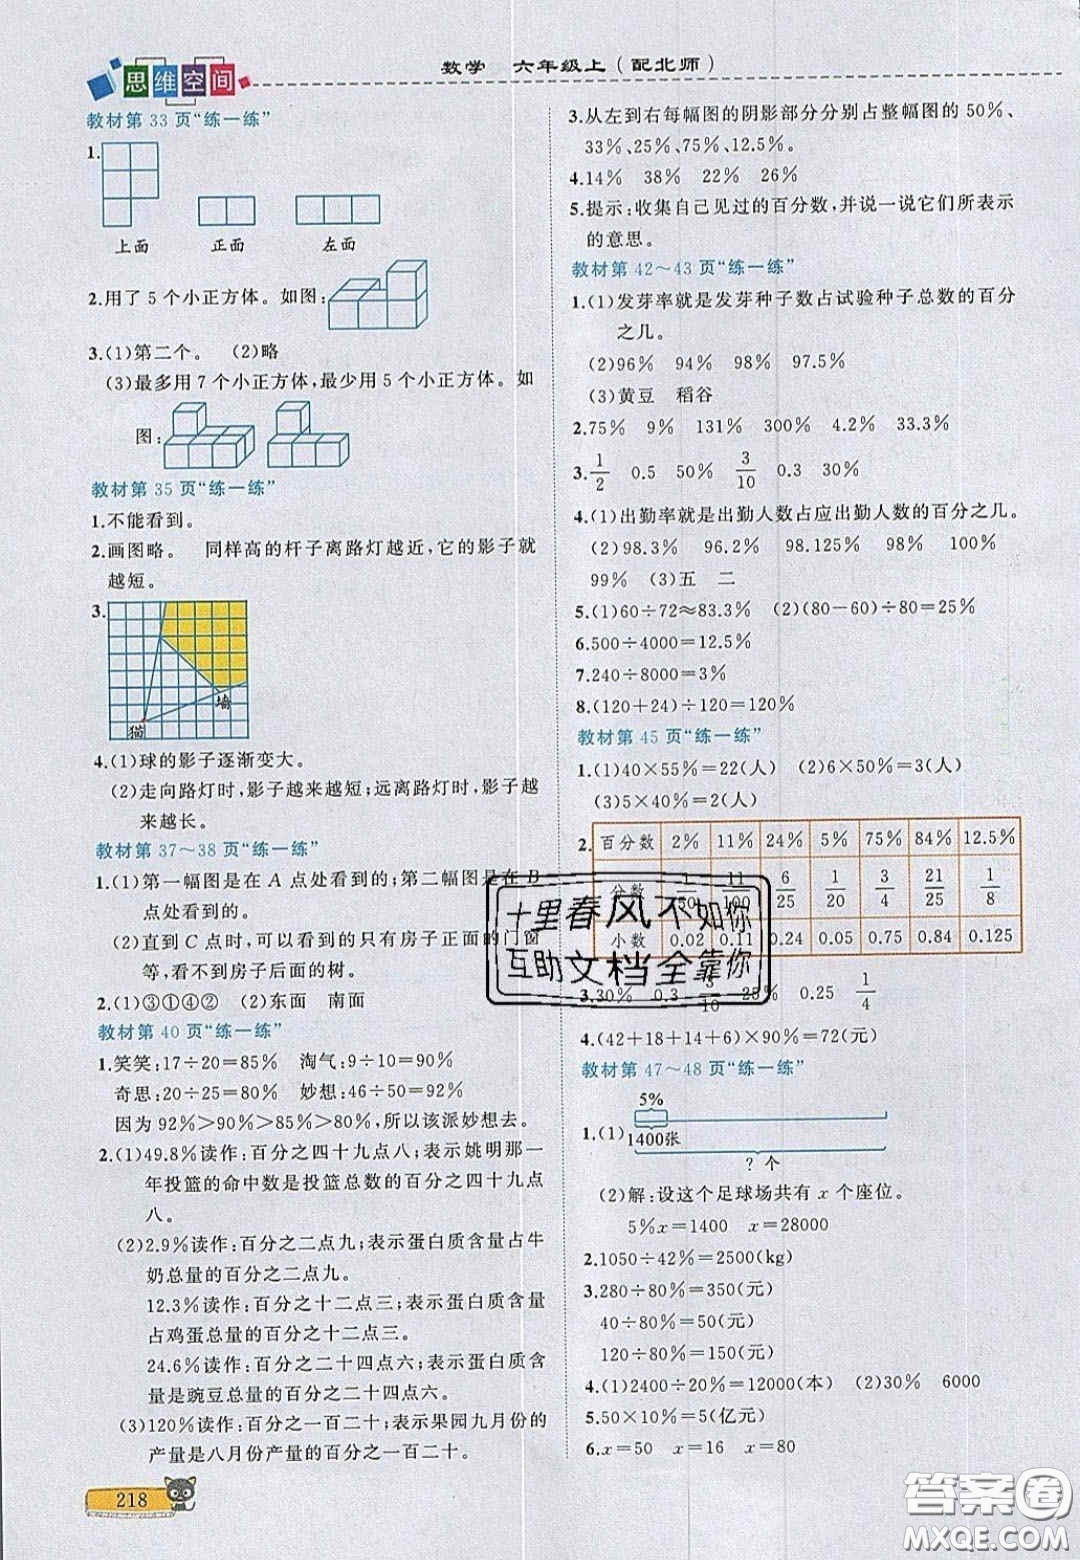 思维空间
数学 六年级上(配北师)
教材第33页“练一练”
1.
上面 正面 左面
2.用了5个小正方体。如图:
3.(1)第二个。 (2)略
(3)最多用7个小正方体,最少用5个小正方体。如
图:
教材第35页“练一练”
1.不能看到。
2.画图略。 同样高的杆子离路灯越近,它的影子就
越短。
3.
墙
猫
4.(1)球的影子逐渐变大。
(2)走向路灯时,影子越来越短;远离路灯时,影子越
来越长。
教材第37～38页“练一练”
1.(1)第一幅图是在A点处看到的;第二幅图是在B
点处看到的。
(2)直到C点时,可以看到的只有房子正面的门窗
等,看不到房子后面的树。
2.(1)③①④② (2)东面 南面
教材第40页“练一练”
1.笑笑:17÷20=85% 淘气:9÷10=90%
奇思:20÷25=80% 妙想:46÷50=92%
因为92%>90%>85%>80%,所以该派妙想去。
2.(1)49.8%读作:百分之四十九点八;表示姚明那
一年投篮的命中数是投篮总数的百分之四十九点
八。
(2)2.9%读作:百分之二点九;表示蛋白质含量占牛
奶总量的百分之二点九。
12.3%读作:百分之十二点三;表示蛋白质含量
占鸡蛋总量的百分之十二点三。
24.6%读作:百分之二十四点六;表示蛋白质含
量是豌豆总量的百分之二十四点六。
(3)120%读作:百分之一百二十;表示果园九月份的
产量是八月份产量的百分之一百二十。
218
3.从左到右每幅图的阴影部分分别占整幅图的50%、
33%、25%、75%、12.5%。
4.14% 38% 22% 26%
5.提示:收集自己见过的百分数,并说一说它们所表示
的意思。
教材第42～43页“练一练”
1.(1)发芽率就是发芽种子数占试验种子总数的百分
之几。
(2)96% 94% 98% 97.5%
(3)黄豆 稻谷
2.75% 9% 131% 300% 4.2% 33.3%
3. 1/2 0.5 50% 3/10 0.3 30%
4.(1)出勤率就是出勤人数占应出勤人数的百分之几。
(2)98.3% 96.2% 98.125% 98% 100%
99% (3)五 二
5.(1)60÷72≈83.3% (2)(80-60)÷80=25%
6.500÷4000=12.5%
7.240÷8000=3%
8.(120+24)÷120=120%
教材第45页“练一练”
1.(1)40×55%=22(人) (2)6×50%=3(人)
(3)5×40%=2(人)
2. 百分数 2% 11% 24% 5% 75% 84% 12.5%
分数 1/50 11/100 6/25 1/20 3/4 21/25 1/8
小数 0.02 0.11 0.24 0.05 0.75 0.84 0.125
3.30% 0.3 3/10 25% 0.25 1/4
十里春风不如你
互助文档全靠你
4.(42+18+14+6)×90%=72(元)
教材第47～48页“练一练”
5%
1.(1) 1400张
? 个
(2)解:设这个足球场共有x个座位。
5%x=1400 x=28000
2.1050÷42%=2500(kg)
3.280÷80%=350(元)
40÷80%=50(元)
120÷80%=150(元)
4.(1)2400÷20%=12000(本) (2)30% 6000
5.50×10%=5(亿元)
6.x=50 x=16 x=80
答案圈
MXQE.COM